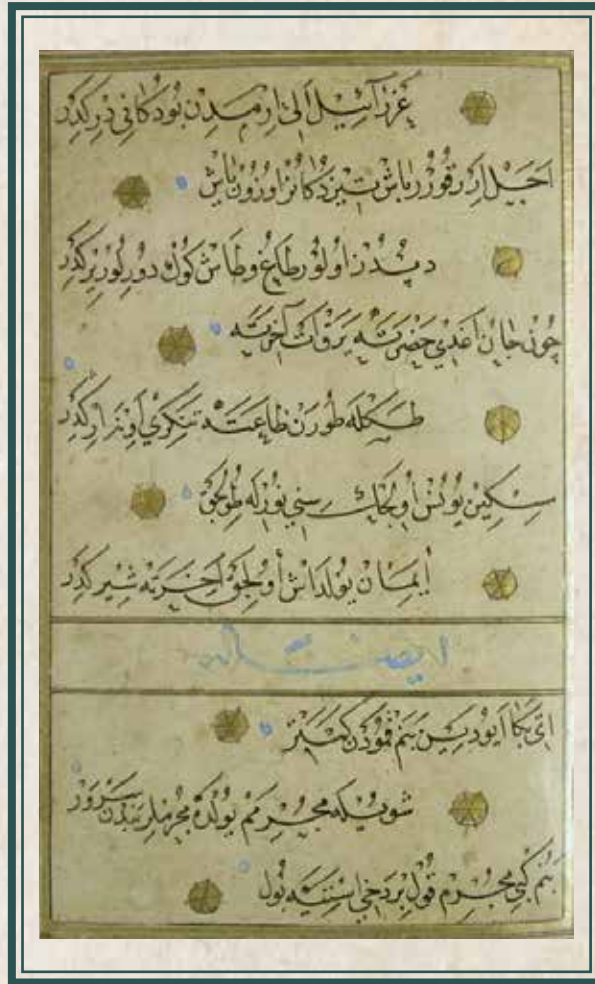 عزرآئيل الى ارمدن بودكانى دركدر
اجل ارر قورر باش تيز دكانز اوزون ياش
دپدز اولور طاغ وطاش كوك دورلور يركدر
چون جان اغدى حضرته يرق ات آخرته
طكله طورن طاعته تنكرى اونزاركدر
سكين يونس اولجك سنى نورله طولجق
ايمان يولداش اولجق آخرته شيركدر
ايضا له
اى بكا ايو ديين بنم قمودن كمتر
شويله مجرمم يولده مجرملر بندن سرور
بنم كبى مجرم قول بر دخى استيه بول